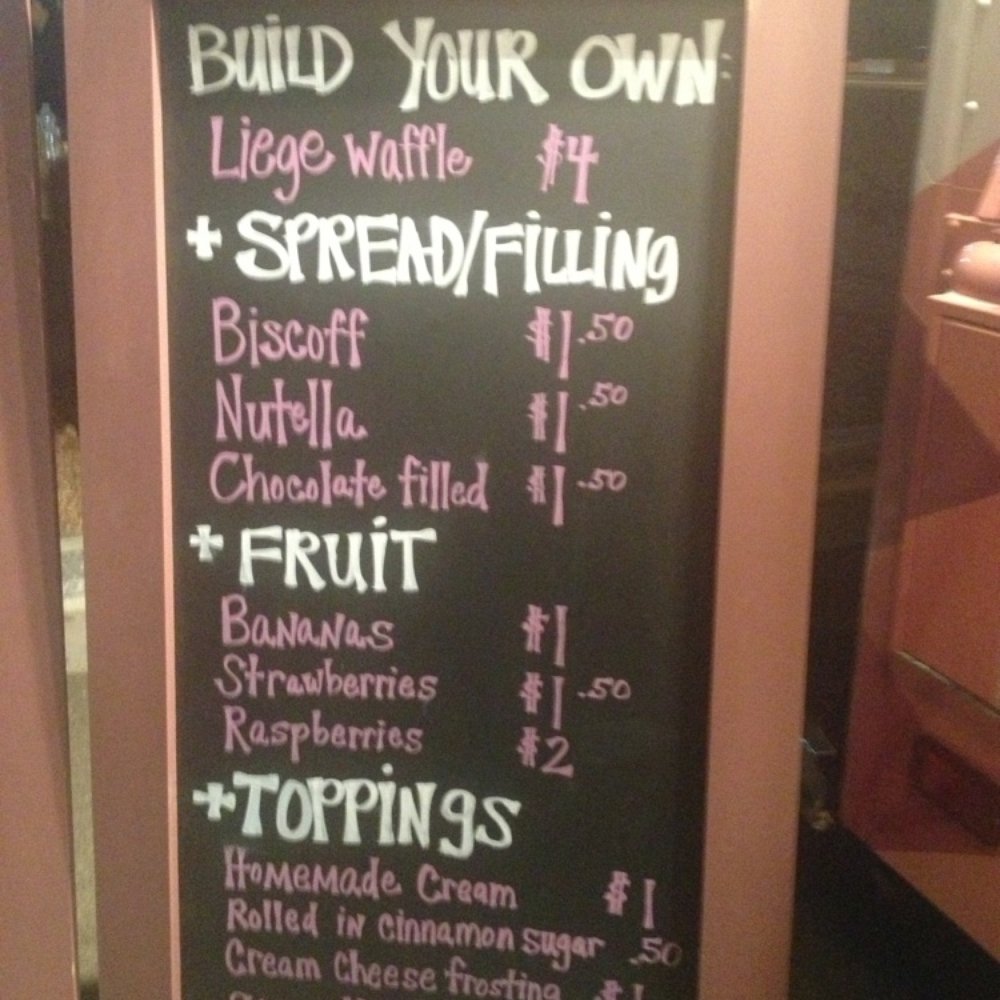 BUILD YOUR OWN:
Liege waffle $4
+ SPREAD/FILLING
Biscoff $1.50
Nutella $1.50
Chocolate filled $1.50
+ FRUIT
Bananas $1
Strawberries $1.50
Raspberries $2
+TOPPINGS
Homemade Cream $1
Rolled in cinnamon sugar .50
Cream Cheese frosting $1